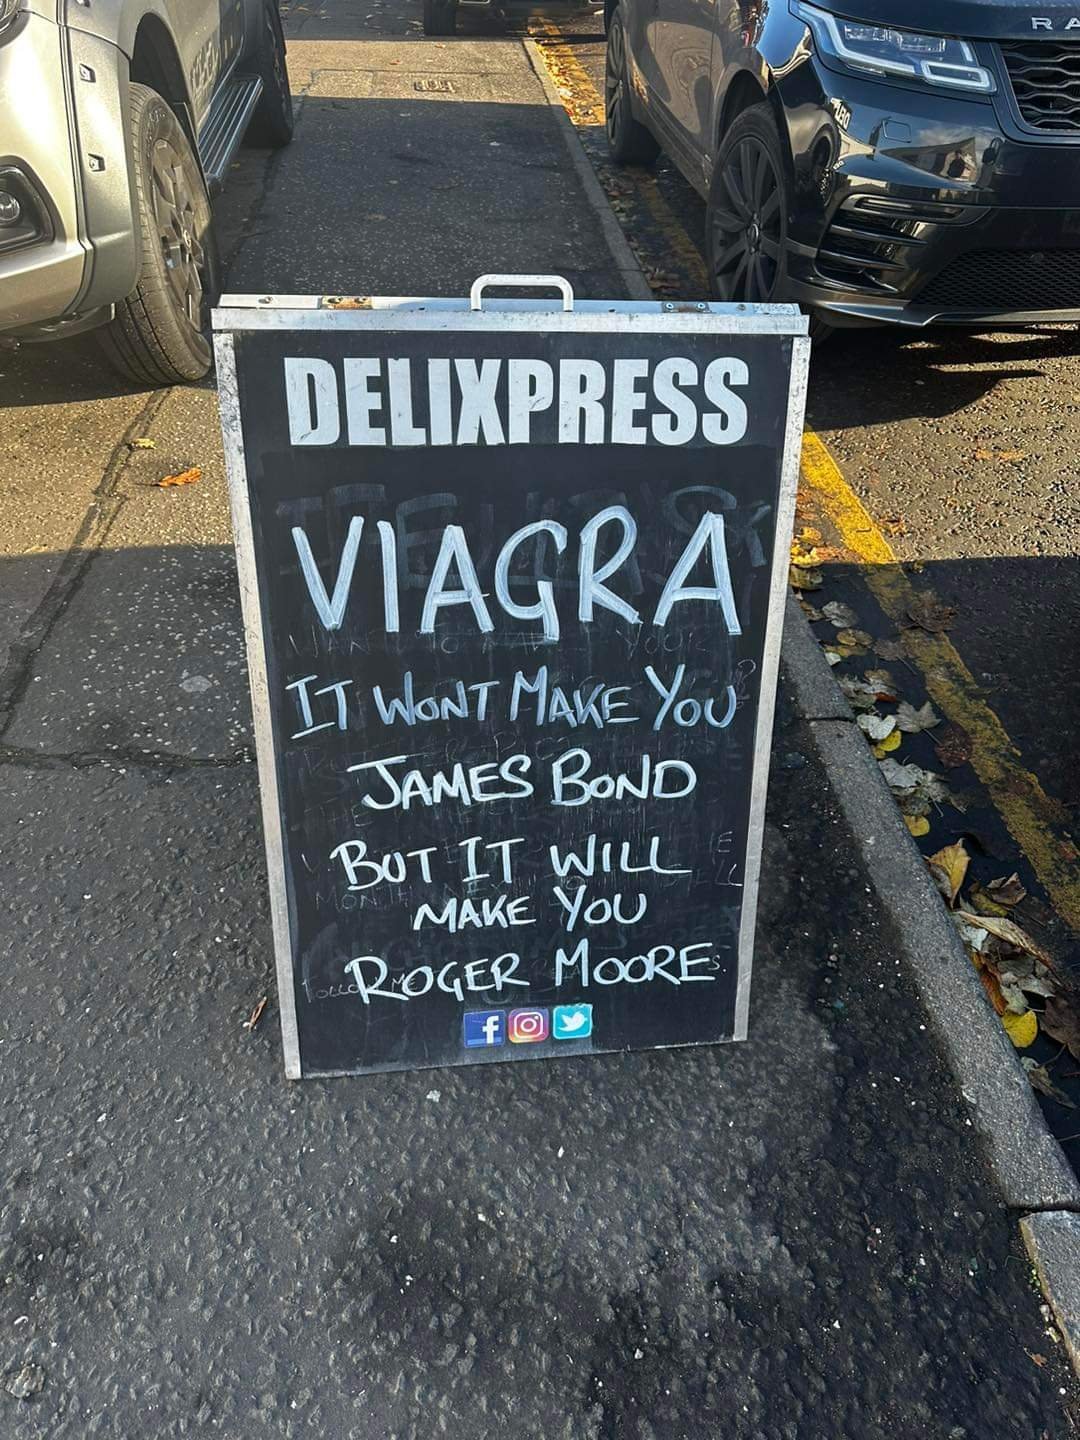 RA
DELIXPRESS
VIAGRA
IT WONT MAKE YOU
JAMES BOND
BUT IT WILL
MAKE YOU
ROGER MOORE